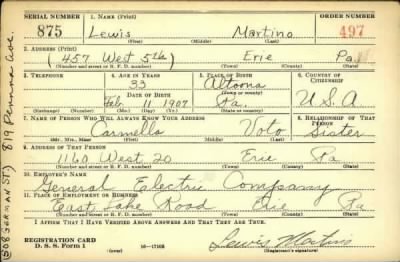 SERIAL NUMBER 1. NAME (Print) ORDER NUMBER
875 Lewis Martino 497
(First) (Middle) (Last)
2. ADDRESS (Print)
(457 West 5th) Erie Pa.
(Number and street or R. F. D. number) (Town) (County) (State)
3. TELEPHONE 4. AGE IN YEARS 5. PLACE OF BIRTH 6. COUNTRY OF CITIZENSHIP
33 Altoona
DATE OF BIRTH (Town or county)
Feb. 11 1907 Pa. U.S.A
(Exchange) (Number) (Mo.) (Day) (Yr.) (State or country)
7. NAME OF PERSON WHO WILL ALWAYS KNOW YOUR ADDRESS 8. RELATIONSHIP OF THAT PERSON
Carmella Voto Sister
(Mr., Mrs., Miss) (First) (Middle) (Last)
9. ADDRESS OF THAT PERSON
1160 West 20 Erie Pa
(Number and street or R. F. D. number) (Town) (County) (State)
10. EMPLOYER'S NAME
General Electric Company
11. PLACE OF EMPLOYMENT OR BUSINESS
East Lake Road Erie Pa
(Number and street or R. F. D. number) (Town) (County) (State)
I AFFIRM THAT I HAVE VERIFIED ABOVE ANSWERS AND THAT THEY ARE TRUE.
REGISTRATION CARD
D. S. S. Form 1 16-17105 Lewis Martino
819 Ave.
ST)